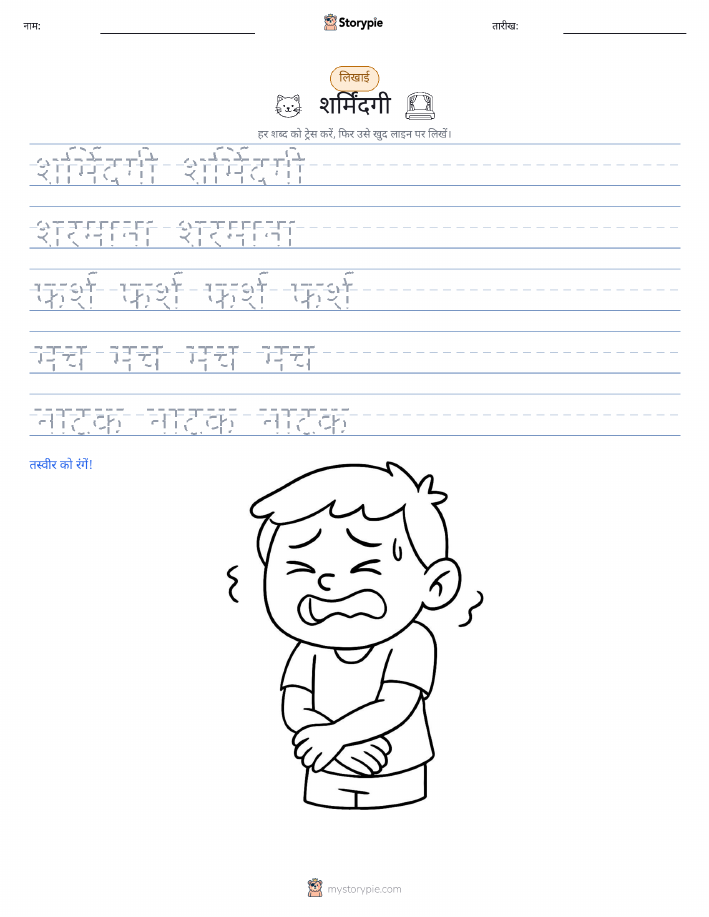 नाम: Storypie तारीख:
लिखाई
शर्मिंदगी
हर शब्द को ट्रेस करें, फिर उसे खुद लाइन पर लिखें।
शर्मिंदगी शर्मिंदगी
शरमाना शरमाना
फर्श फर्श फर्श फर्श
मंच मंच मंच मंच
नाटक नाटक नाटक
तस्वीर को रंगें!
mystorypie.com